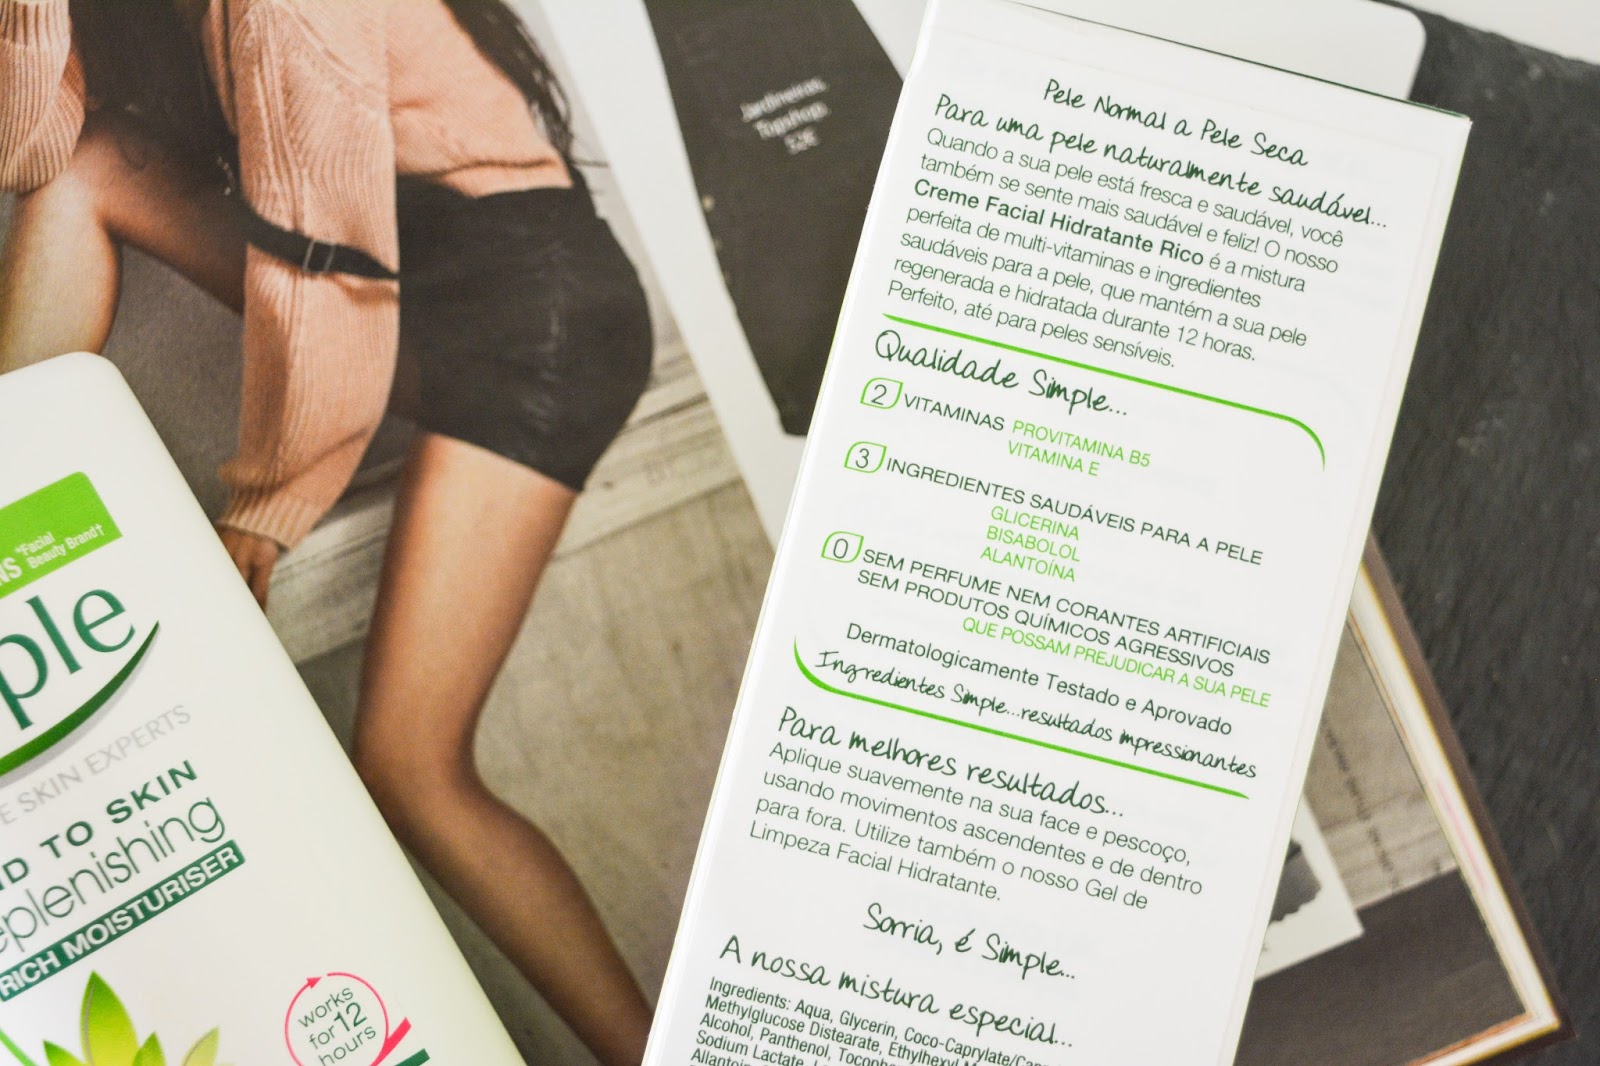 Jardineiras,
Topshop,
52€
Pele Normal a Pele Seca
Para uma pele naturalmente saudável...
Quando a sua pele está fresca e saudável, você
também se sente mais saudável e feliz! O nosso
Creme Facial Hidratante Rico é a mistura
perfeita de multi-vitaminas e ingredientes
saudáveis para a pele, que mantém a sua pele
regenerada e hidratada durante 12 horas.
Perfeito, até para peles sensíveis.
Qualidade Simple...
2 VITAMINAS PROVITAMINA B5
VITAMINA E
3 INGREDIENTES SAUDÁVEIS PARA A PELE
GLICERINA
BISABOLOL
ALANTOÍNA
0 SEM PERFUME NEM CORANTES ARTIFICIAIS
SEM PRODUTOS QUÍMICOS AGRESSIVOS
QUE POSSAM PREJUDICAR A SUA PELE
Dermatologicamente Testado e Aprovado
Ingredientes Simple...resultados impressionantes
Para melhores resultados...
Aplique suavemente na sua face e pescoço,
usando movimentos ascendentes e de dentro
para fora. Utilize também o nosso Gel de
Limpeza Facial Hidratante.
Sorria, é Simple...
A nossa mistura especial...
Ingredients: Aqua, Glycerin, Coco-Caprylate/
Methylglucose Distearate, Ethylhexyl
Alcohol, Panthenol,
Sodium Lactate,
NS *Facial
Beauty Brand†
ple
E SKIN EXPERTS
ND TO SKIN
eplenishing
RICH MOISTURISER
works
for 12
hours